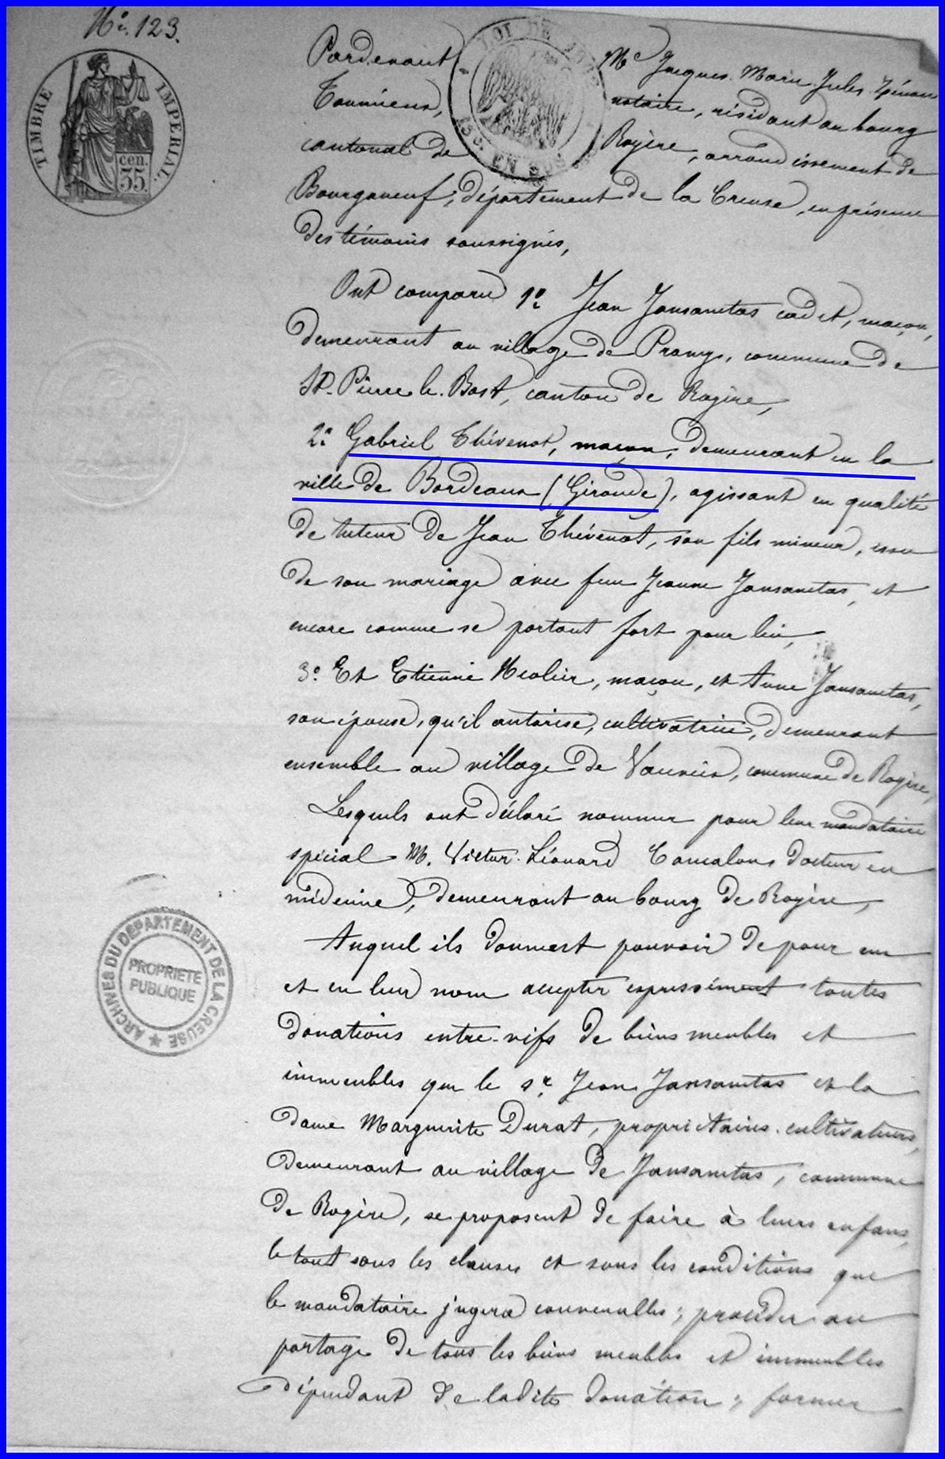 N° 123.
TIMBRE IMPERIAL
cen.
35
LOI DE
EN SUS
Pardevant Me Jacques Marie Jules
notaire, résidant au bourg
cantonal de Royère, arrondissement de
Bourganeuf, département de la Creuse, en présence
des témoins soussignés,
Ont comparu 1° Jean Jansanetas cadet, maçon,
demeurant au village de Prangs, commune de
St. Pierre le Bost, canton de Royère,
2° Gabriel Thévenot, maçon, demeurant en la
ville de Bordeaux (Gironde), agissant en qualité
de tuteur de Jean Thévenot, son fils mineur, issu
de son mariage avec feue Jeanne Jansanetas, et
encore comme se portant fort pour lui,
3° Et Etienne maçon, et Anne Jansanetas,
son épouse, qu'il autorise, cultivatrice, demeurant
ensemble au village de Vauveix, commune de Royère,
Lesquels ont déclaré nommer pour leur mandataire
spécial M. Victor Léonard docteur en
médecine, demeurant au bourg de Royère,
Auquel ils donnent pouvoir de pour eux
et en leur nom accepter expressément toutes
donations entre-vifs de biens meubles et
immeubles que le sr Jean Jansanetas et la
dame Marguerite Durat, propriétaires-cultivateurs,
demeurant au village de Jansanetas, commune
de Royère, se proposent de faire à leurs enfans,
le tout sous les clauses et sous les conditions que
le mandataire jugera convenables; procéder au
partage de tous les biens meubles et immeubles
dépendant de ladite donation; former
ARCHIVES DU DEPARTEMENT DE LA CREUSE
PROPRIETE
PUBLIQUE